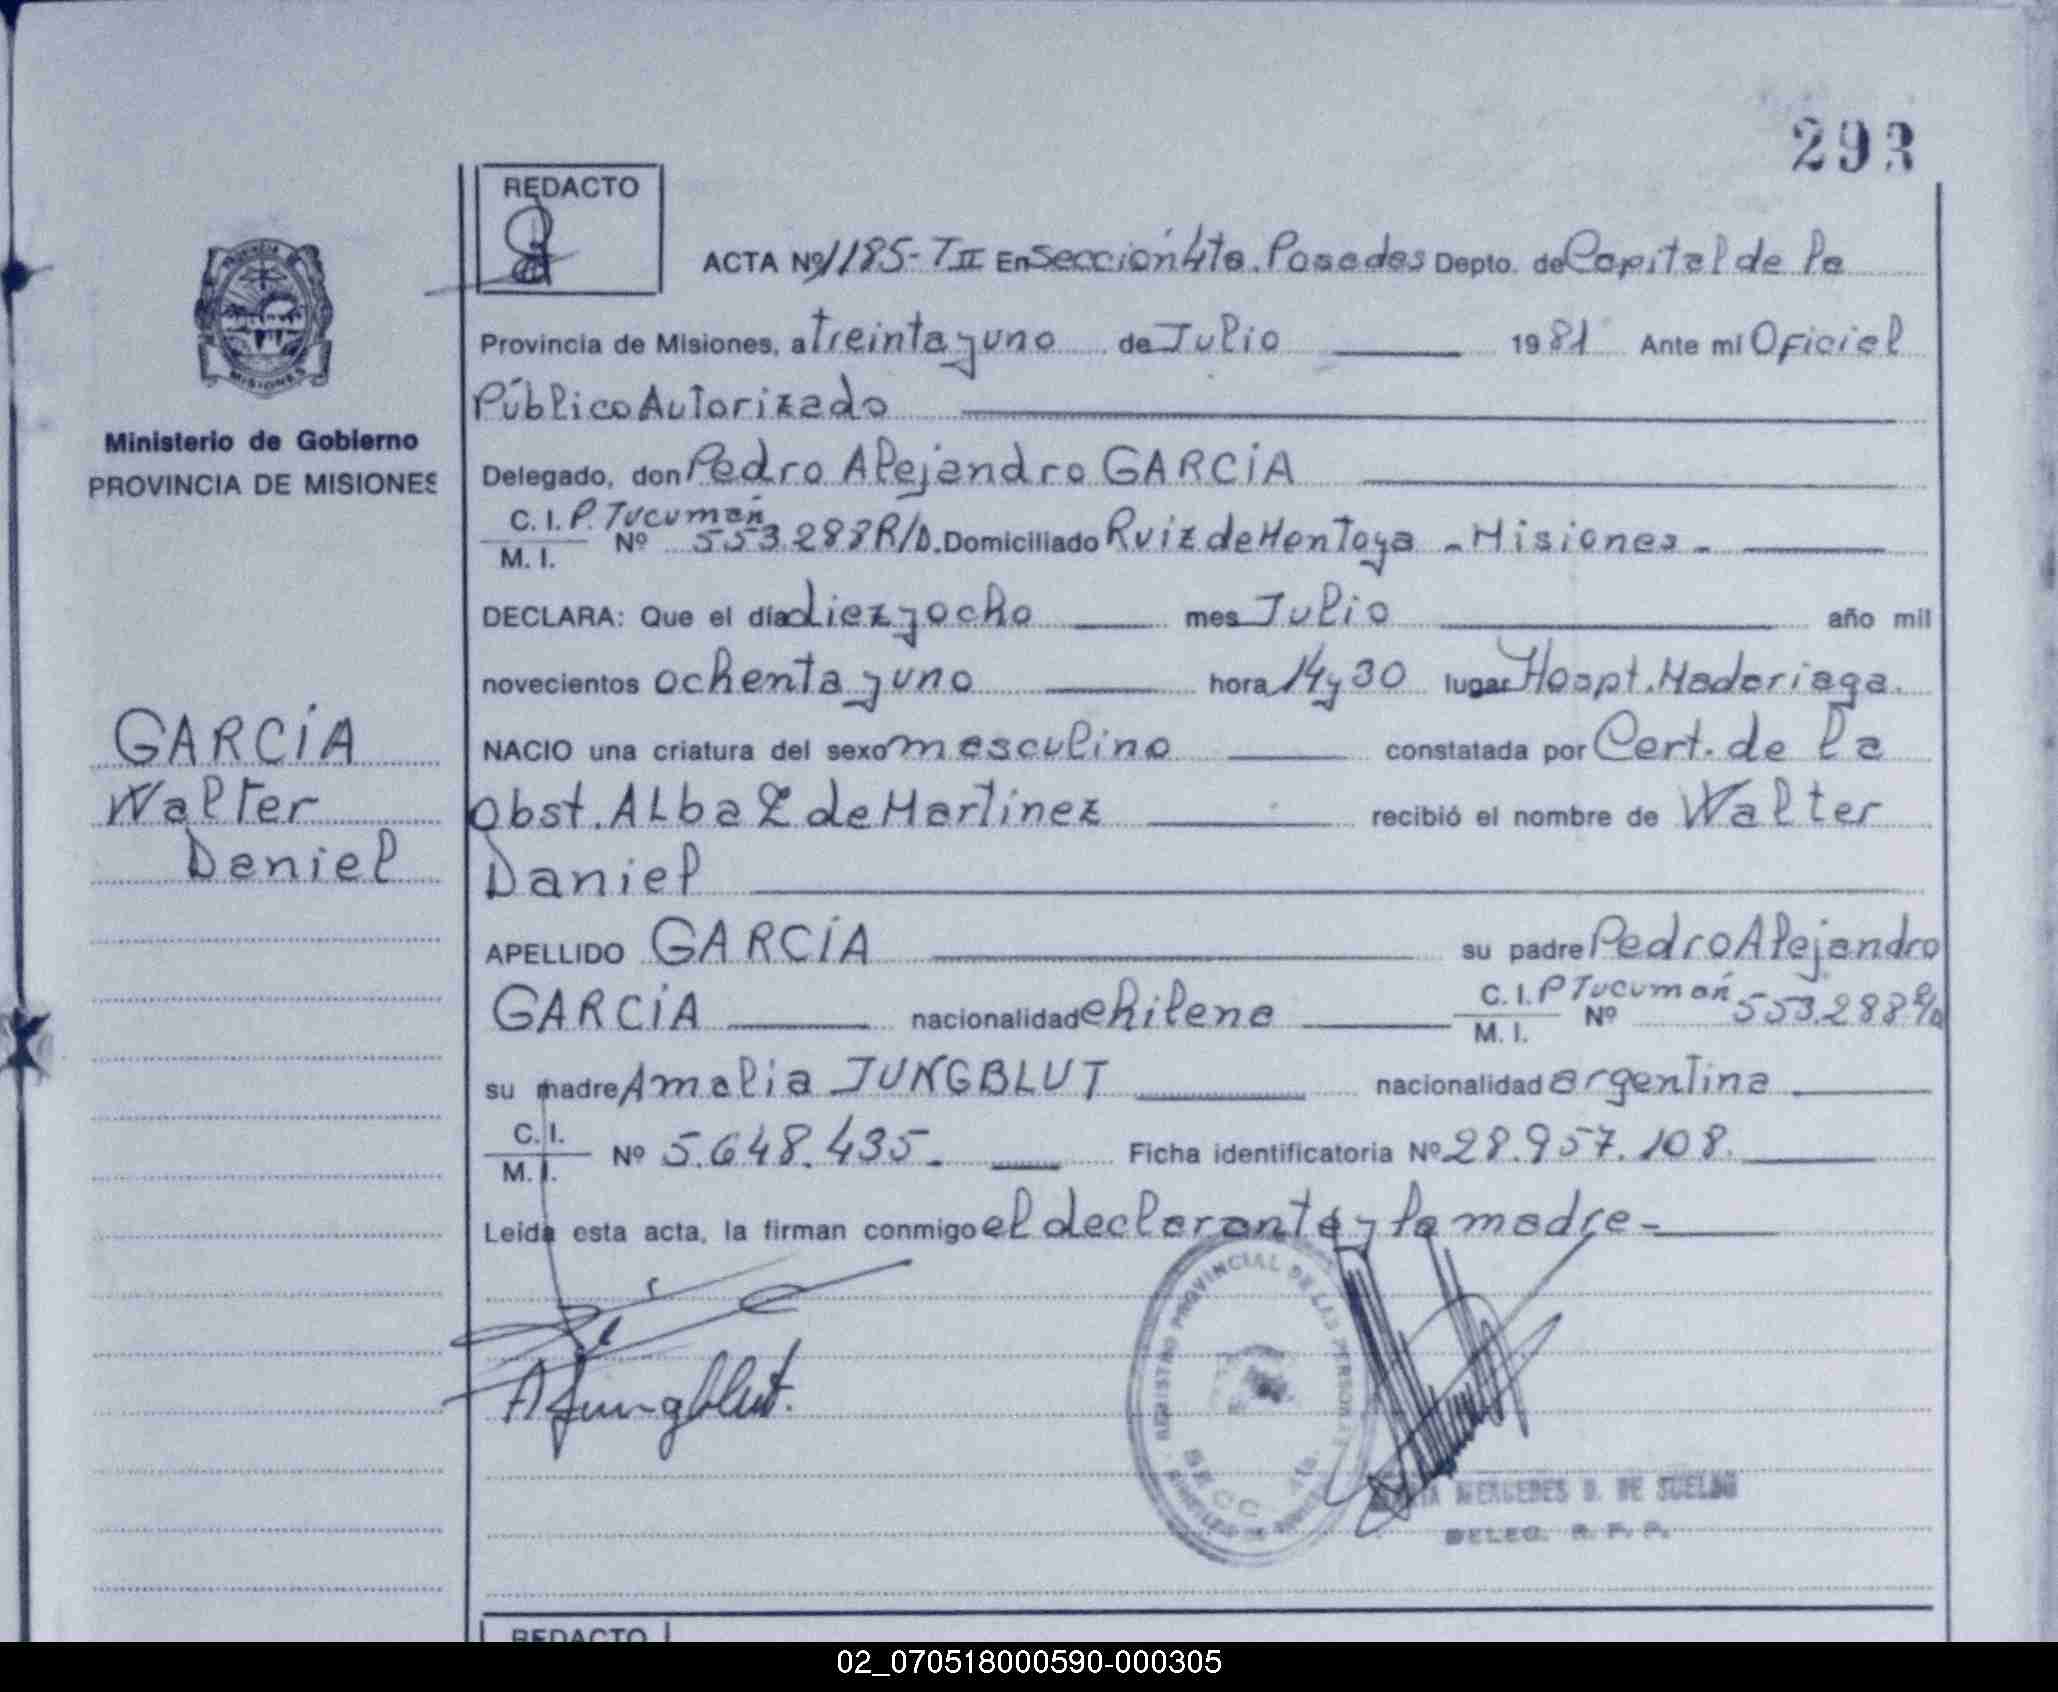 293
REDACTO
ACTA Nº 1185-T II En Sección 4ta. Posadas Depto. de Capital de la
Provincia de Misiones, a treinta y uno de Julio 1981 Ante mi Oficial
Público Autorizado
Ministerio de Gobierno
PROVINCIA DE MISIONES
Delegado, don Pedro Alejandro GARCÍA
C. I. P. Tucumán
M. I. Nº 553.288 R/D. Domiciliado Ruiz de Montoya - Misiones -
DECLARA: Que el día diez y ocho mes Julio año mil
novecientos ochenta y uno hora 14 y 30 lugar Hospt. Madariaga.
GARCÍA
Walter
Daniel
NACIO una criatura del sexo masculino constatada por Cert. de la
Obst. Alba Z de Martínez recibió el nombre de Walter
Daniel
APELLIDO GARCÍA su padre Pedro Alejandro
GARCÍA nacionalidad chilena C. I. P Tucumán
M. I. Nº 553.288 R/D
su madre Amalia JUNGBLUT nacionalidad argentina
C. I.
M. I. Nº 5.648.435.- Ficha identificatoria Nº 28.957.108.
Leída esta acta, la firman conmigo el declarante y la madre-
A Jungblut.
REGISTRO PROVINCIAL DE LAS PERSONAS
SECC 4ta.
MERCEDES D. DE SUELDO
DELEG. R. P. P.
REDACTO
02_070518000590-000305